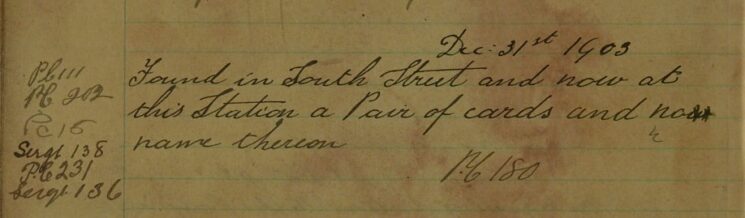 Dec: 31st 1903
Pc 111
Found in South Street and now at
PC 202
this Station a Pair of cards and no
Pc 15
name thereon
Sergt 138
P.C 231
PC 180
Sergt 136